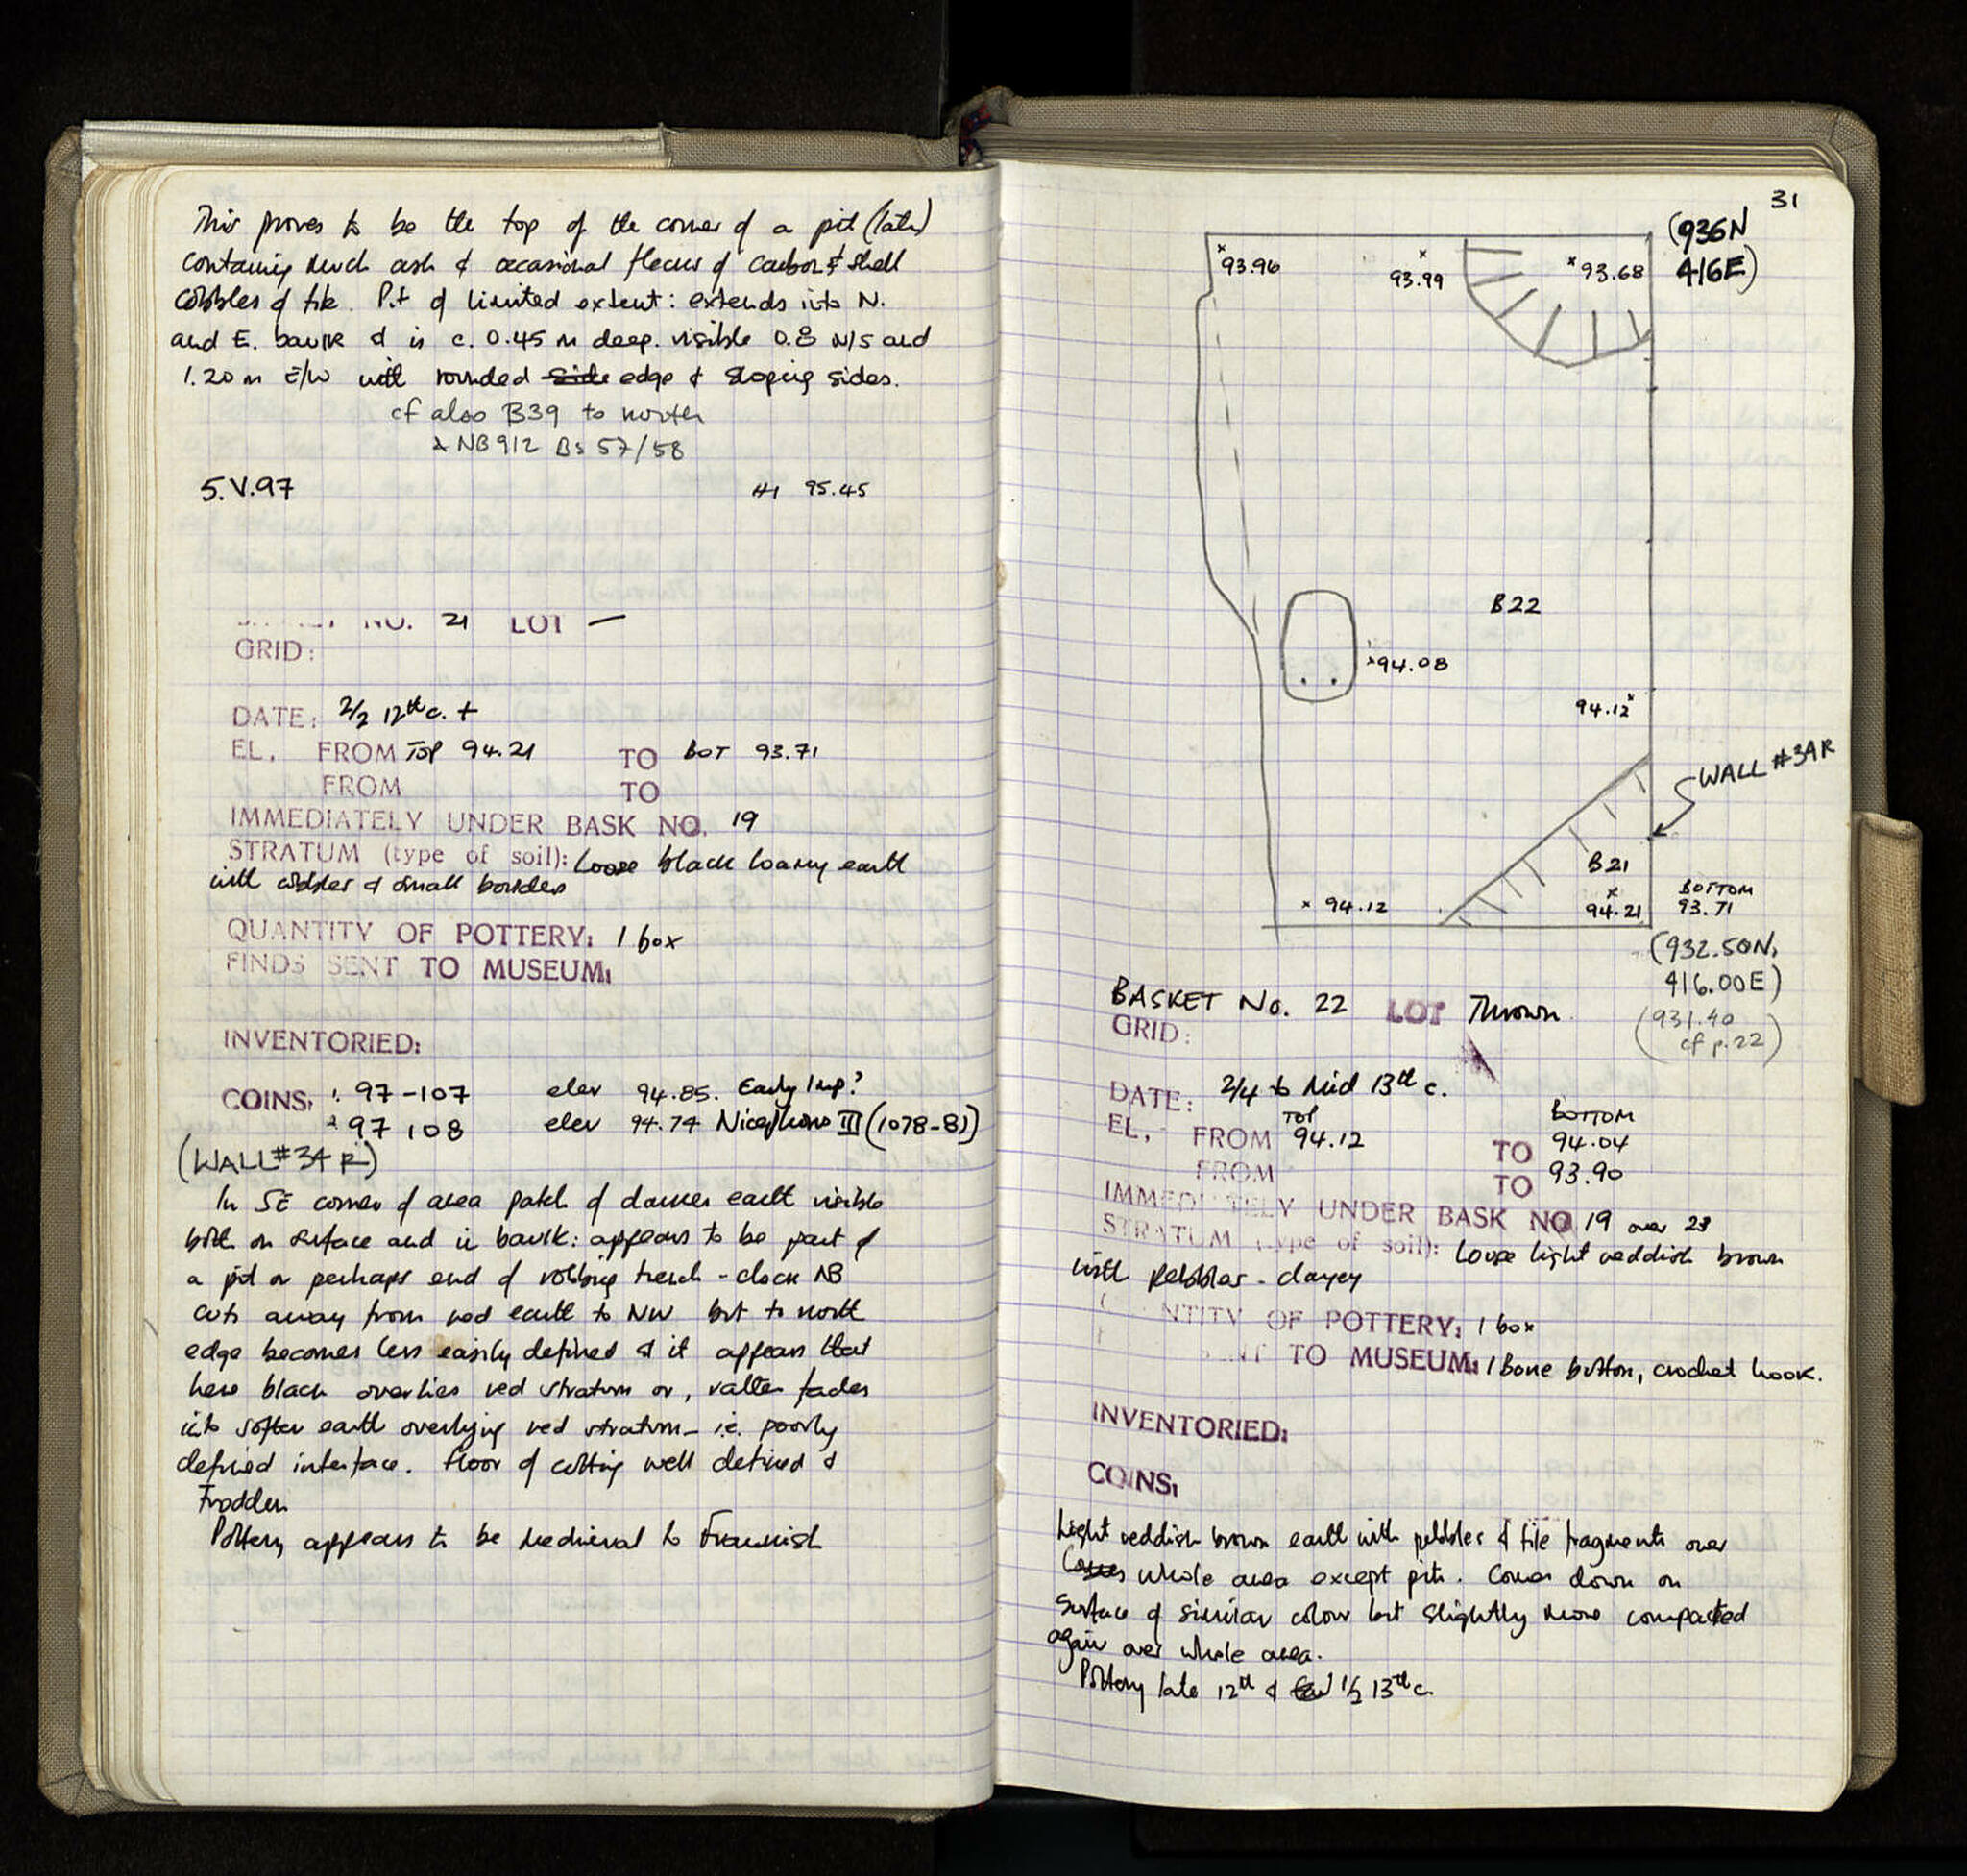 This proves to be the top of the corner of a pit (late)
containing much ash & occasional flecks of carbon & shell
cobbles & tile. Pit of limited extent: extends into N.
and E. baulk & is c. 0.45 m deep. visible 0.8 N/S and
1.20 m E/W with rounded side edge & sloping sides.
cf also B39 to north
& NB 912 Bs 57/58
5.V.97 HI 95.45
NO. 21 LOT —
GRID:
DATE: 2/2 12th c. +
EL. FROM TOP 94.21 TO BOT 93.71
FROM TO
IMMEDIATELY UNDER BASK NO. 19
STRATUM (type of soil): Loose black loamy earth
with cobbles & small boulders
QUANTITY OF POTTERY: 1 box
FINDS SENT TO MUSEUM:
INVENTORIED:
COINS: 1. 97-107 elev 94.85. Early Imp?
2 97 108 elev 94.74 Nicephorus III (1078-81)
(WALL #34 R)
In SE corner of area patch of darker earth visible
both on surface and in baulk: appears to be part of
a pit or perhaps end of robbing trench - check NB
cuts away from red earth to NW but to north
edge becomes less easily defined & it appears that
here black overlies red stratum or, rather fades
into softer earth overlying red stratum - i.e. poorly
defined interface. Floor of cutting well defined &
trodden
Pottery appears to be medieval to Frankish
31
(936N
416E)
93.96
93.99
93.68
B22
94.08
94.12
WALL #34R
B21
94.12
94.21
BOTTOM
93.71
(932.50N,
416.00E)
(931.40
cf p.22)
BASKET No. 22 LOT Thrown
GRID:
DATE: 2/4 to Mid 13th c.
TOP BOTTOM
EL. FROM 94.12 TO 94.04
FROM TO 93.90
IMMEDIATELY UNDER BASK NO 19 over 23
STRATUM (type of soil): Loose light reddish brown
with pebbles - clayey
NTITY OF POTTERY: 1 box
SENT TO MUSEUM: 1 Bone button, crochet hook.
INVENTORIED:
COINS:
Light reddish brown earth with pebbles & tile fragments over
whole area except pits. Comes down on
surface of similar colour but slightly more compacted
again over whole area.
Pottery late 12th & 1/2 13th c.